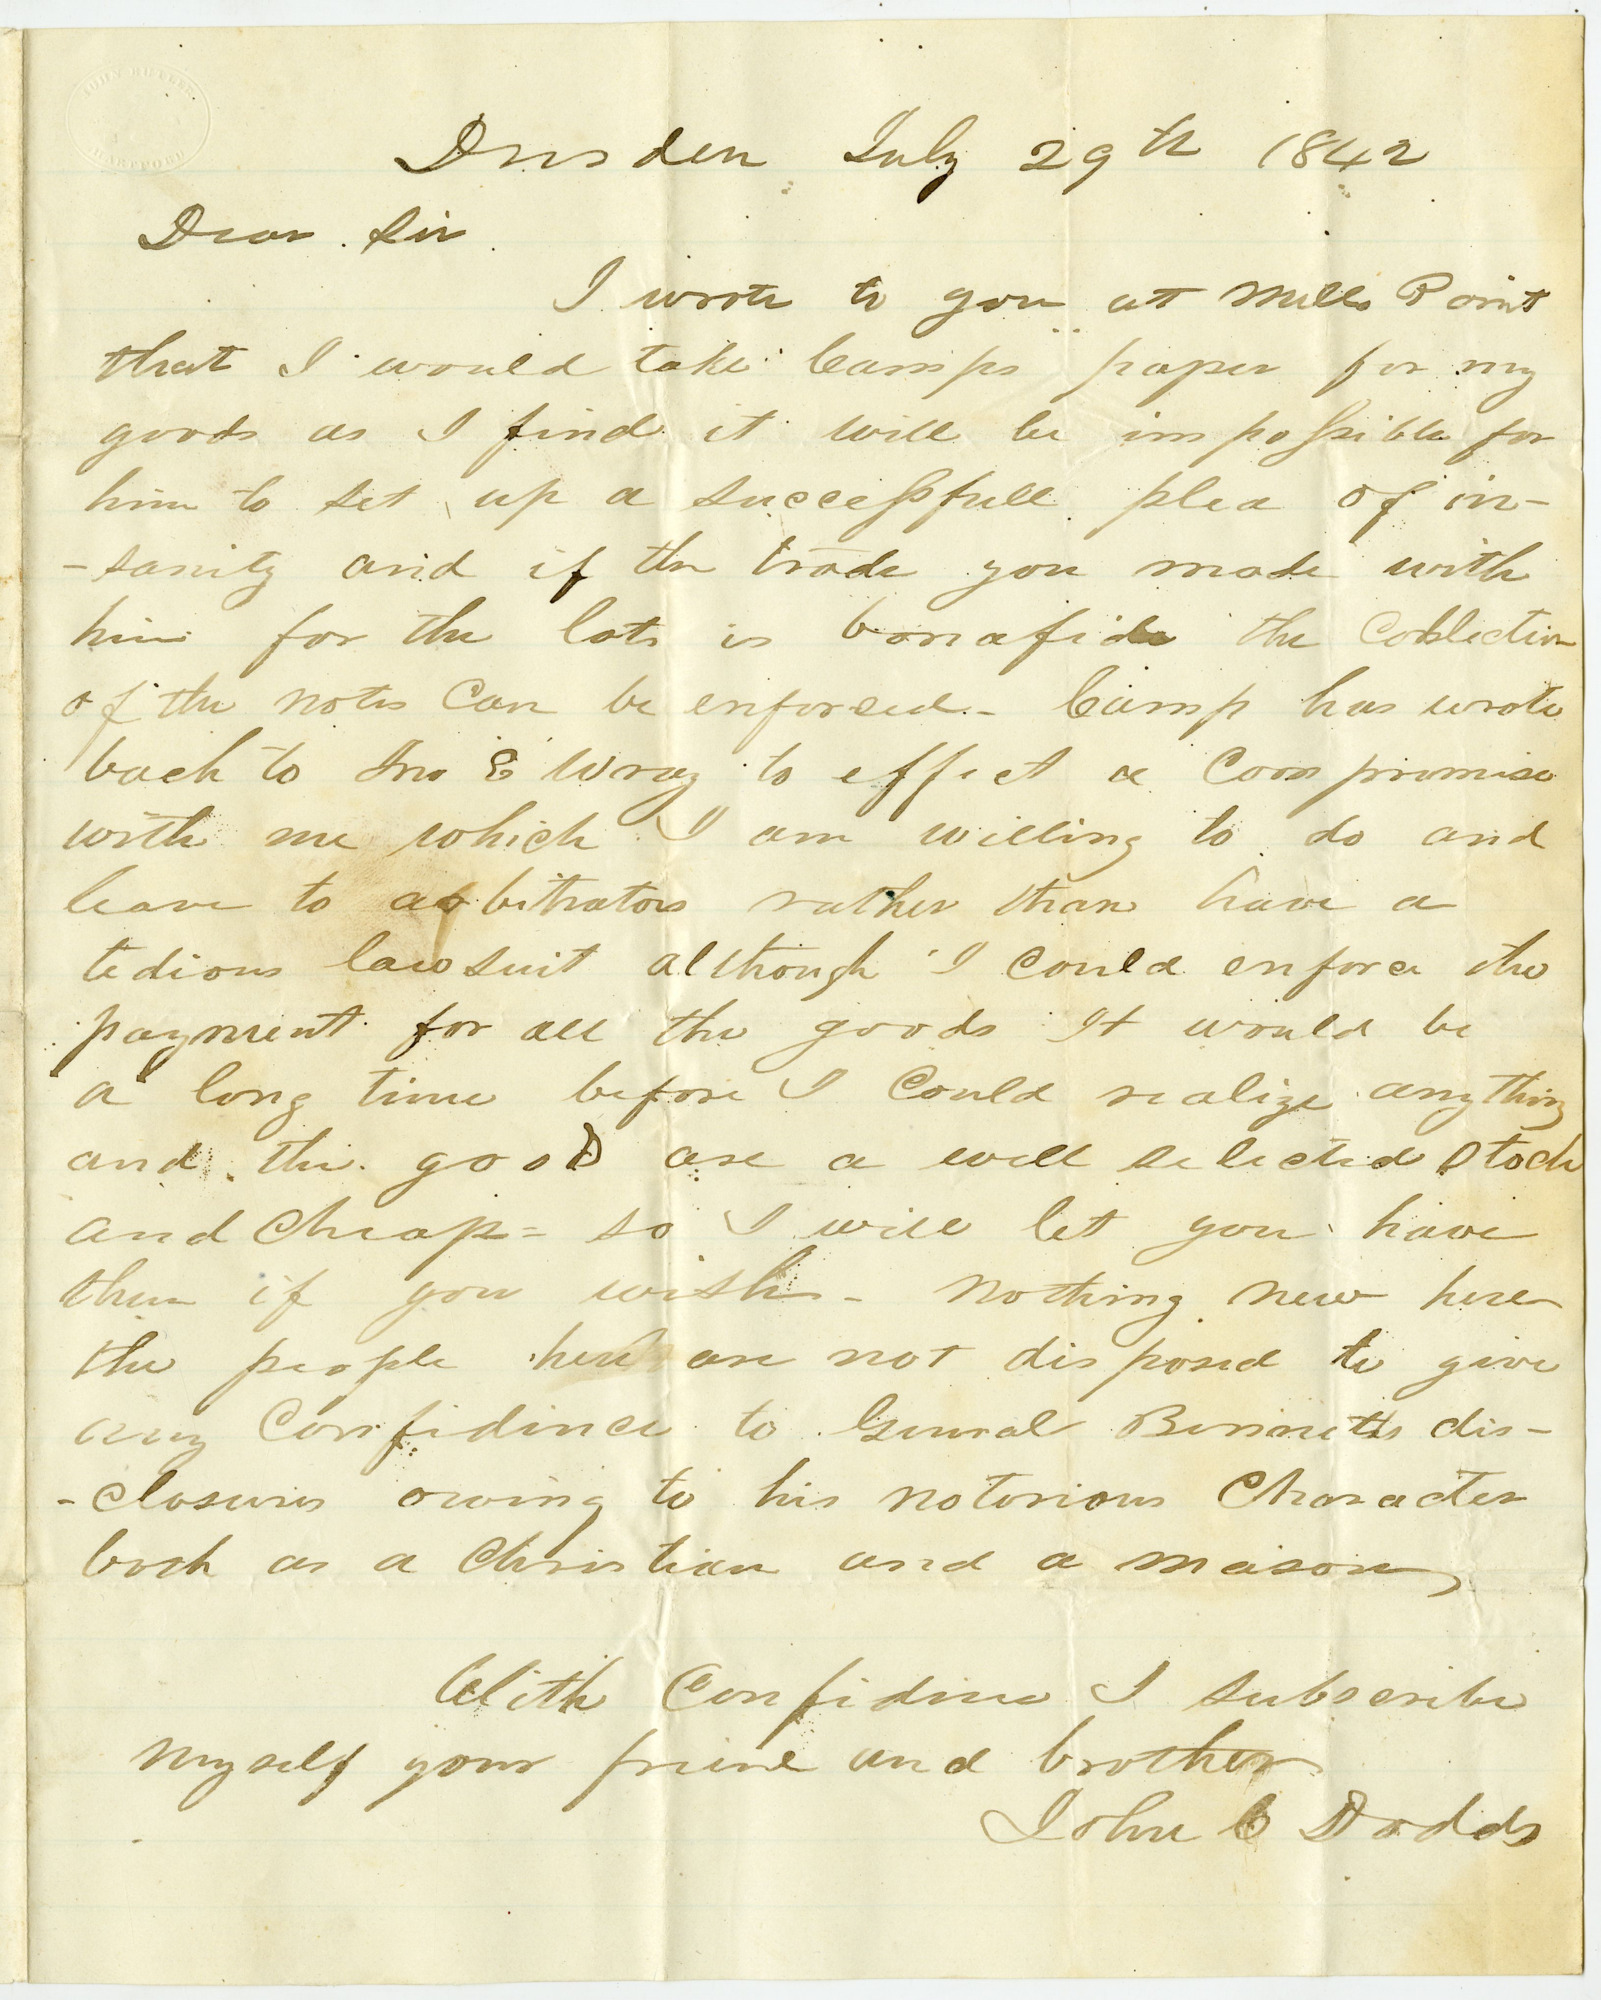 JOHN BUTLER
HARTFORD
Dresden July 29th 1842
Dear Sir
I wrote to you at Mills Point
that I would take Camps paper for my
goods as I find it will be impossible for
him to set up a successfull plea of in-
-sanity and if the trade you made with
him for the lots is bonafide the Collection
of the notes Can be enforced - Camp has wrote
back to Jno E Wray to effect a Compromise
with me which I am willing to do and
leave to arbitrators rather than have a
tedious lawsuit although I could enforce the
payment for all the goods It would be
a long time before I Could realize anything
and the goods are a well selected Stock
and Cheap = so I will let you have
them if you wish - Nothing new here
the people here are not disposed to give
any Confidence to General Bennetts dis-
-closures owing to his notorious Character
both as a Christian and a mason,
With Confidence I subscribe
myself your friend and brother
John C Dodds